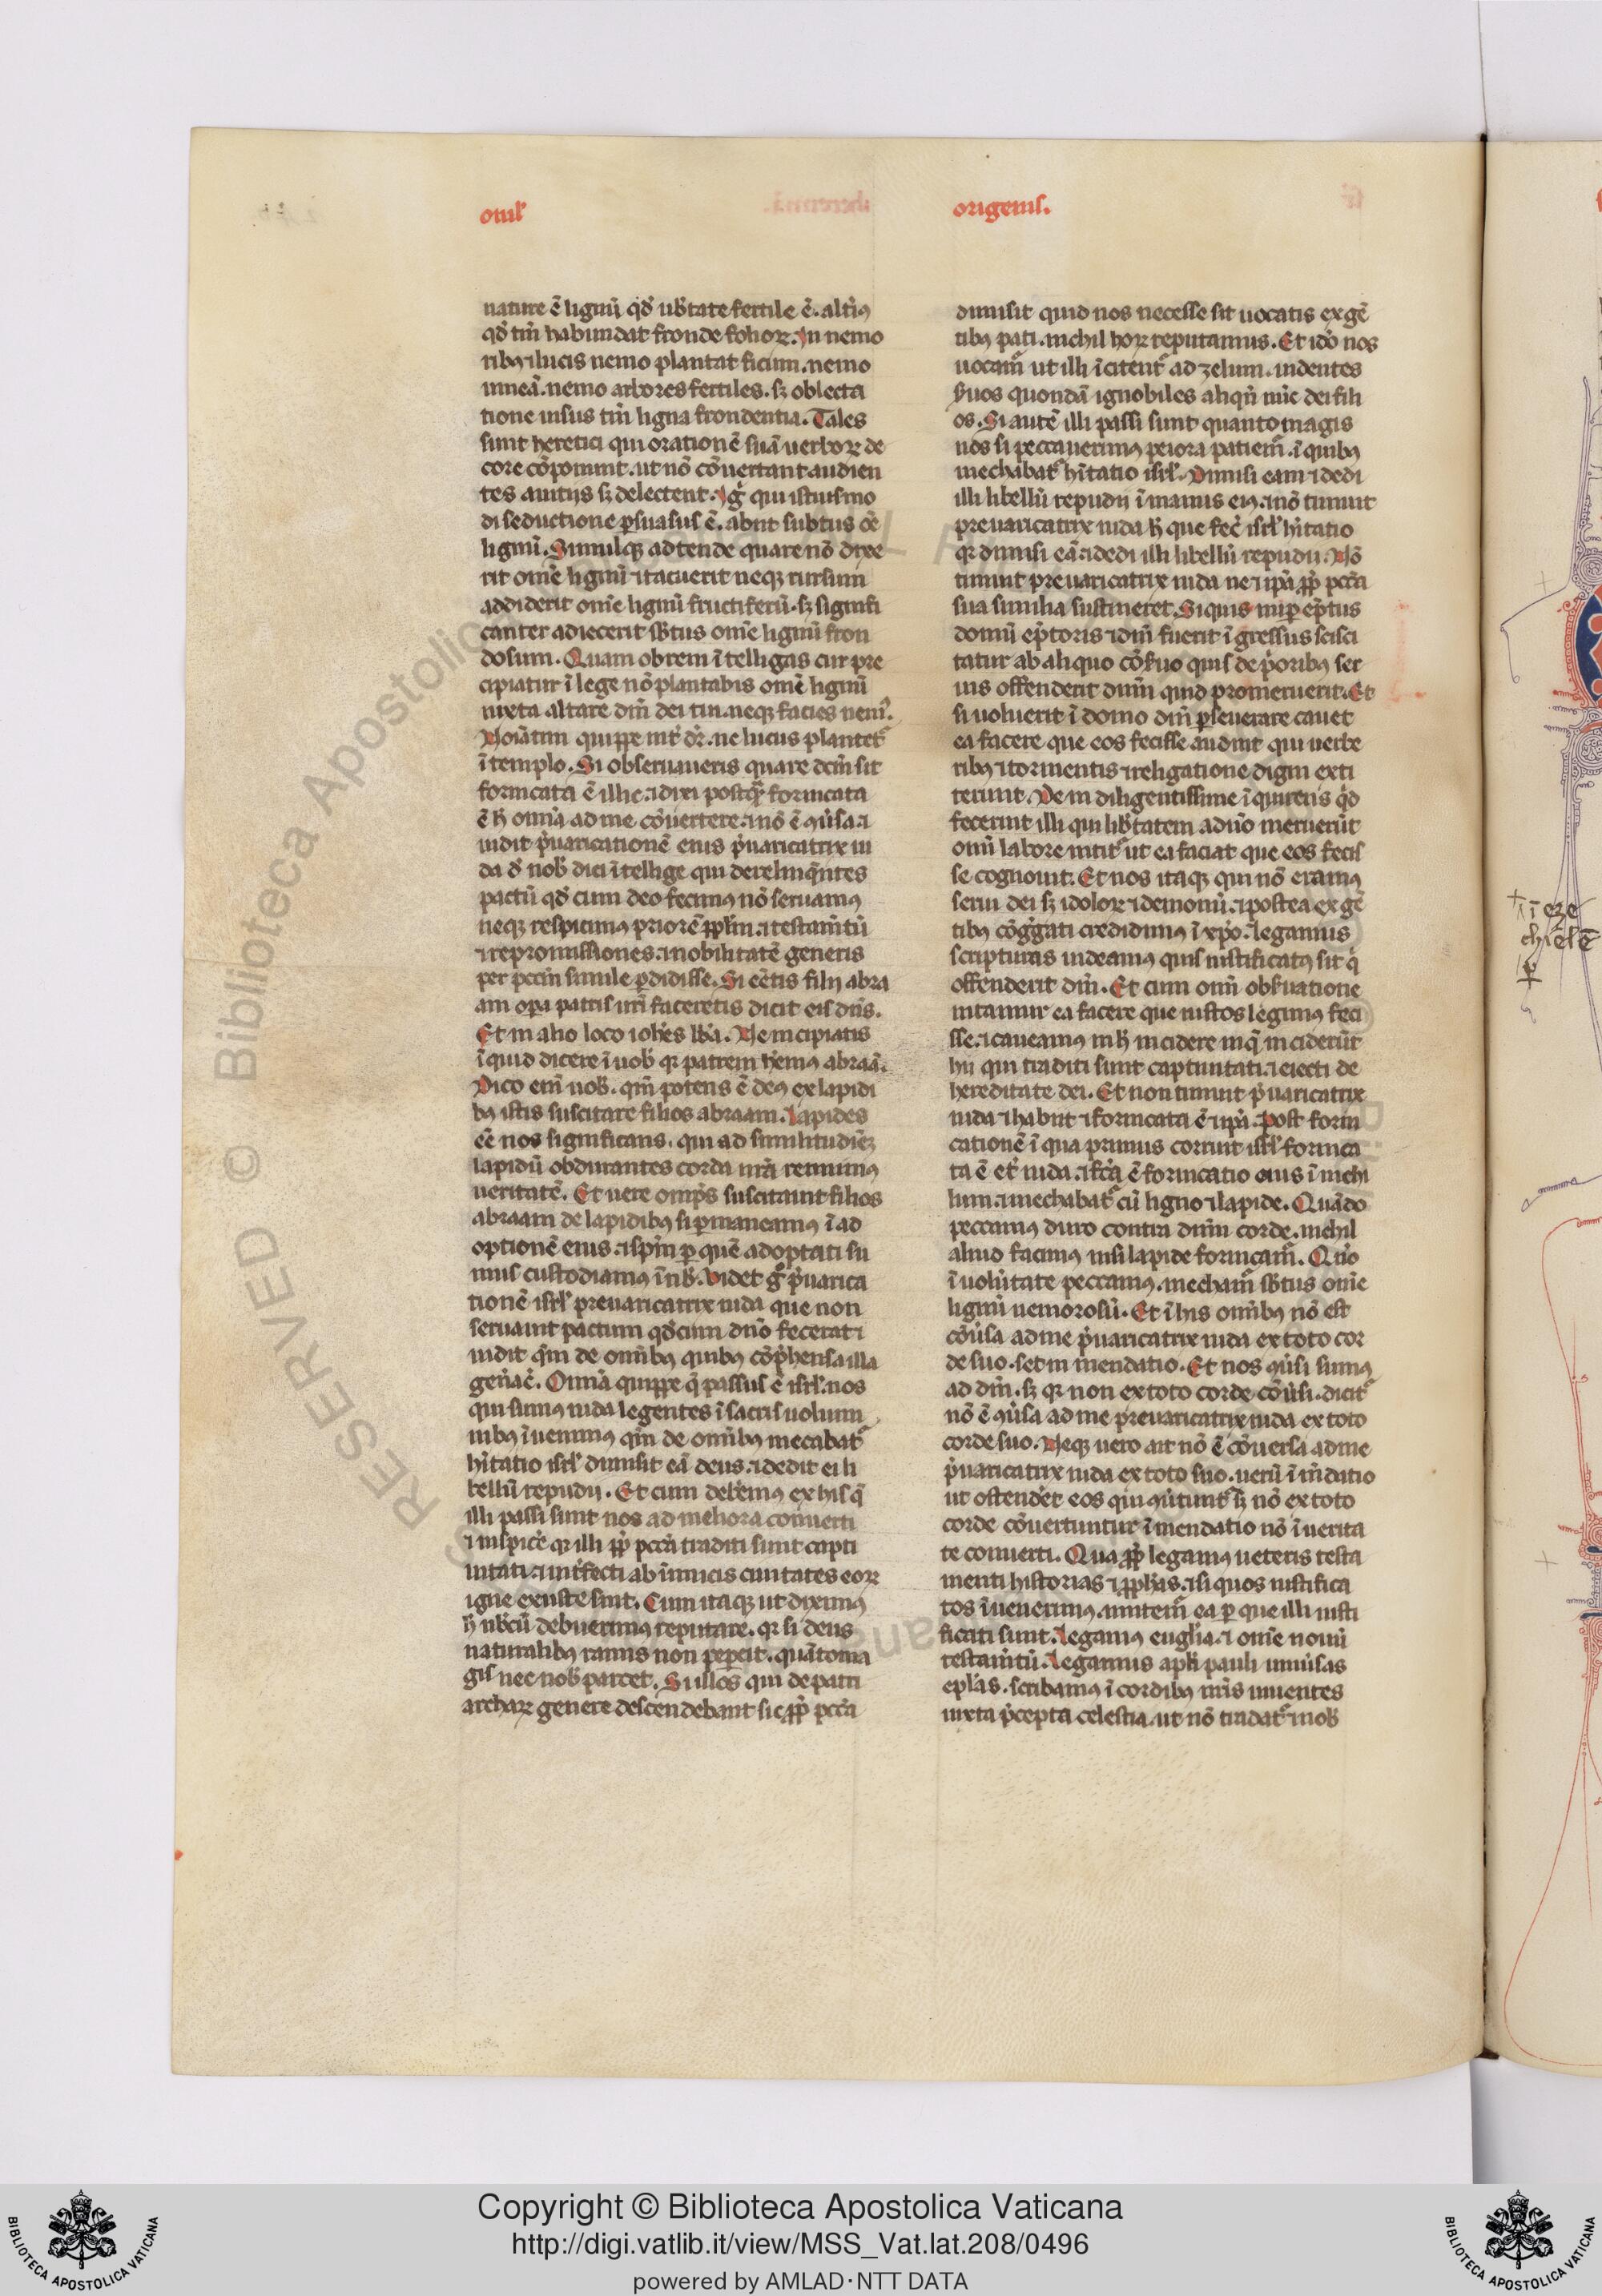 omlʼ
origenis.
nature ē lignū qd̓ ub̓tate fertile ē. alti̓ꝰ
qd̓ tm̄ habundat fronde folioꝝ. In nemo
ribꝰ ⁊ lucis nemo plantat ficum. nemo
uineā. nemo arbores fertiles. sꝫ oblecta
tione uisus tm̄ ligna frondentia. Tales
sunt heretici qui orationē suā uerboꝝ de
core cōponunt. ut nō cōuertant audien
tes a uitijs sꝫ delectent. Igͦ qui istiusmo
di seductione ꝑsuasus ē. abiit subtus oē
lignū. Simulqꝫ adtende quare nō dixe
rit omē lignū ⁊ tacuerit neqꝫ rursum
addiderit omē lignū fructiferū. sꝫ signifi
canter adiecerit sb̓tus omē lignū fron
dosum. Quam obrem ītelligas cur pre
cipiatur ī lege nō plantabis omē lignū
iuxta altare dm̄ dei tui. neqꝫ facies nemꝰ.
Noīatim quippe int̓ dr̓. ne lucus plantet᷑
ī templo. Si obseruaueris quare dcm̄ sit
fornicata ē illic. ⁊ dixi postqᷓ fornicata
ē h̓ omīa ad me cōuertere. ⁊ nō ē ꝯu̓sa. ⁊
uidit p̓uaricationē eius p̓uaricatrix iu
da d̓ nob̓ dici ītellige qui derelinq̄ntes
pactū qd̓ cum deo fecimꝰ nō seruamꝰ
neqꝫ respicimꝰ priorē ppl̓m. ⁊ testam̄tū
⁊ repromissiones. ⁊ nobilitatē generis
per pctm̄ simile ꝑdidisse. Si eētis filij abra
am oꝑa patris ur̄i faceretis dicit eis dn̄s.
Et in alio loco ioh̓es lb̓a. Ne incipiatis
īquid dicere ī uob̓ qꝛ patrem hemꝰ abraā.
Dico em̄ uob̓. qm̄ potens ē deꝰ ex lapidi
bꝰ istis suscitare filios abraam. Lapides
eē nos significans. qui ad similitudīeꝫ
lapidū obdurantes corda nr̄a renuimꝰ
ueritatē. Et uere omp̄s suscitauit filios
abraam de lapidibꝰ si ꝑmaneamꝰ ī ad
optionē eius. ⁊ spm̄ ꝑ quē adoptati su
mus custodiamꝰ ī nb̓. Videt gͦ p̓uarica
tionē isrl̓ preuaricatrix iuda que non
seruauit pactum qd̓ cum dn̄o fecerat ⁊
uidit qm̄ de omībꝰ quibꝰ cōp̓hensa illa
gen̓ac̓. Omīa quippe q̄ passus ē isrl̓. nos
qui sumꝰ iuda legentes ī sacris uolumi
nibꝰ īuenimꝰ qm̄ de omībꝰ mecabat᷑
hītatio isrl̓ dimisit eā deus. ⁊ dedit ei li
bellū repudij. Et cum deb̓emꝰ ex his q̄
illi passi sunt nos ad meliora conuerti
⁊ inspic̓e qꝛ illi ꝓp̓ pctā traditi sunt capti
uitati. ⁊ int̓fecti ab inimicis ciuitates eoꝝ
igne exuste sint. Cum itaqꝫ ut diximꝰ
h̓ nb̓cū debuerimꝰ reputare. qꝛ si deus
naturalibꝰ ramis non peꝑcit. quātoma
gis nec nob̓ parcet. Si illos qui de patri
archaꝝ genere descendebant sic ꝓp̓ pctā
dimisit quid nos necesse sit uocatis ex gē
tibꝰ pati. nichil hoꝝ reputamus. Et ido̓ nos
uocam᷑ ut illi īcitent᷑ ad zelum. uidentes
s̓uos quondā ignobiles aliqn̄ nūc dei fili
os. Si autē illi passi sunt quanto magis
nos si peccauerimꝰ peiora patiem᷑. ī quibꝰ
mechabat᷑ hītatio isrl̓. Dimisi eam ⁊ dedi
illi libellū repudij ī manus eiꝰ. ⁊ nō timuit
preuaricatrix iuda h̓ que fec̓ isrl̓ hītatio
qꝛ dimisi eā. ⁊ dedi illi libellū repudij. Nō
timuit preuaricatrix iuda ne ⁊ ip̄a ꝓp̓ pctā
sua similia sustineret. Si quis nuꝑ ep̄tus
domū ep̄toris ⁊ dn̄i fuerit īgressus scisci
tatur ab aliquo cōs̓uo quis de p̓oribꝰ ser
uis offenderit dn̄m quid promeruerit. Et
si uoluerit ī domo dn̄i ꝑseuerare cauet
ea facere que eos fecisse audiuit qui uerbe
ribꝰ ⁊ tormentis ⁊ religatione digni exti
terunt. Dein diligentissime īquirens qd̓
fecerint illi qui lib̓tatem a dn̄o meruerūt
omī labore nitit᷑ ut ea faciat que eos fecis
se cognouit. Et nos itaqꝫ qui nō eramꝰ
serui dei sꝫ idoloꝝ ⁊ demonū. ⁊ postea ex gē
tibꝰ cōg̓gati credidimꝰ ī xpo. legamus
scripturas uideamꝰ quis iustificatꝰ sit q̓
offenderit dm̄. Et cum omī obs̓uatione
nitamur ea facere que iustos legimꝰ feci
sse. ⁊ caueamꝰ in h̓ incidere in q̄ inciderūt
hij qui traditi sunt captiuitati. ⁊ eiecti de
hereditate dei. Et non timuit p̓uaricatrix
iuda ⁊ habiit ⁊ fornicata ē ⁊ ip̄a. Post forni
cationē ī qua primus corruit isrl̓ fornica
ta ē et̓ iuda. ⁊ fctā ē fornicatio eius ī nichi
lum. ⁊ mechabat᷑ cū ligno ⁊ lapide. Quādo
peccamꝰ duro contra dn̄m corde. nichil
aliud facimꝰ nisi lapide fornicam᷑. Qn̄o
ī uolūtate peccamꝰ. mecham᷑ sb̓tus omē
lignū nemorosū. Et ī his omībꝰ nō est
cōu̓sa ad me p̓uaricatrix iuda ex toto cor
de suo. set in mendatio. Et nos ꝯu̓si sumꝰ
ad dm̄. sꝫ qꝛ non ex toto corde cōu̓si. dicit᷑
nō ē ꝯu̓sa ad me preuaricatrix iuda ex toto
corde suo. Neqꝫ uero ait nō ē cōuersa ad me
p̓uaricatrix iuda ex toto suo. uerū ī m̄datio
ut ostend̓et eos qui ꝯu̓tunt᷑ sꝫ nō ex toto
corde cōuertuntur ī mendatio nō ī uerita
te conuerti. Qua ꝓp̓ legamꝰ ueteris testa
menti historias ⁊ ꝓph̓ias. ⁊ si quos iustifica
tos īuenerimꝰ. imitem᷑ ea ꝑ que illi iusti
ficati sunt. Legamꝰ eugl̓ia. ⁊ omē noui
testam̄tū. Legamus apl̓i pauli uniu̓sas
epl̓as. scribamꝰ ī cordibꝰ nr̄is uiuentes
iuxta p̓cepta celestia. ut nō tradat᷑ ⁊ nob̓
ī eze
chiele
Copyright © Biblioteca Apostolica Vaticana
http://digi.vatlib.it/view/MSS_Vat.lat.208/0496
powered by AMLAD·NTT DATA
BIBLIOTECA APOSTOLICA VATICANA
BIBLIOTECA APOSTOLICA VATICANA